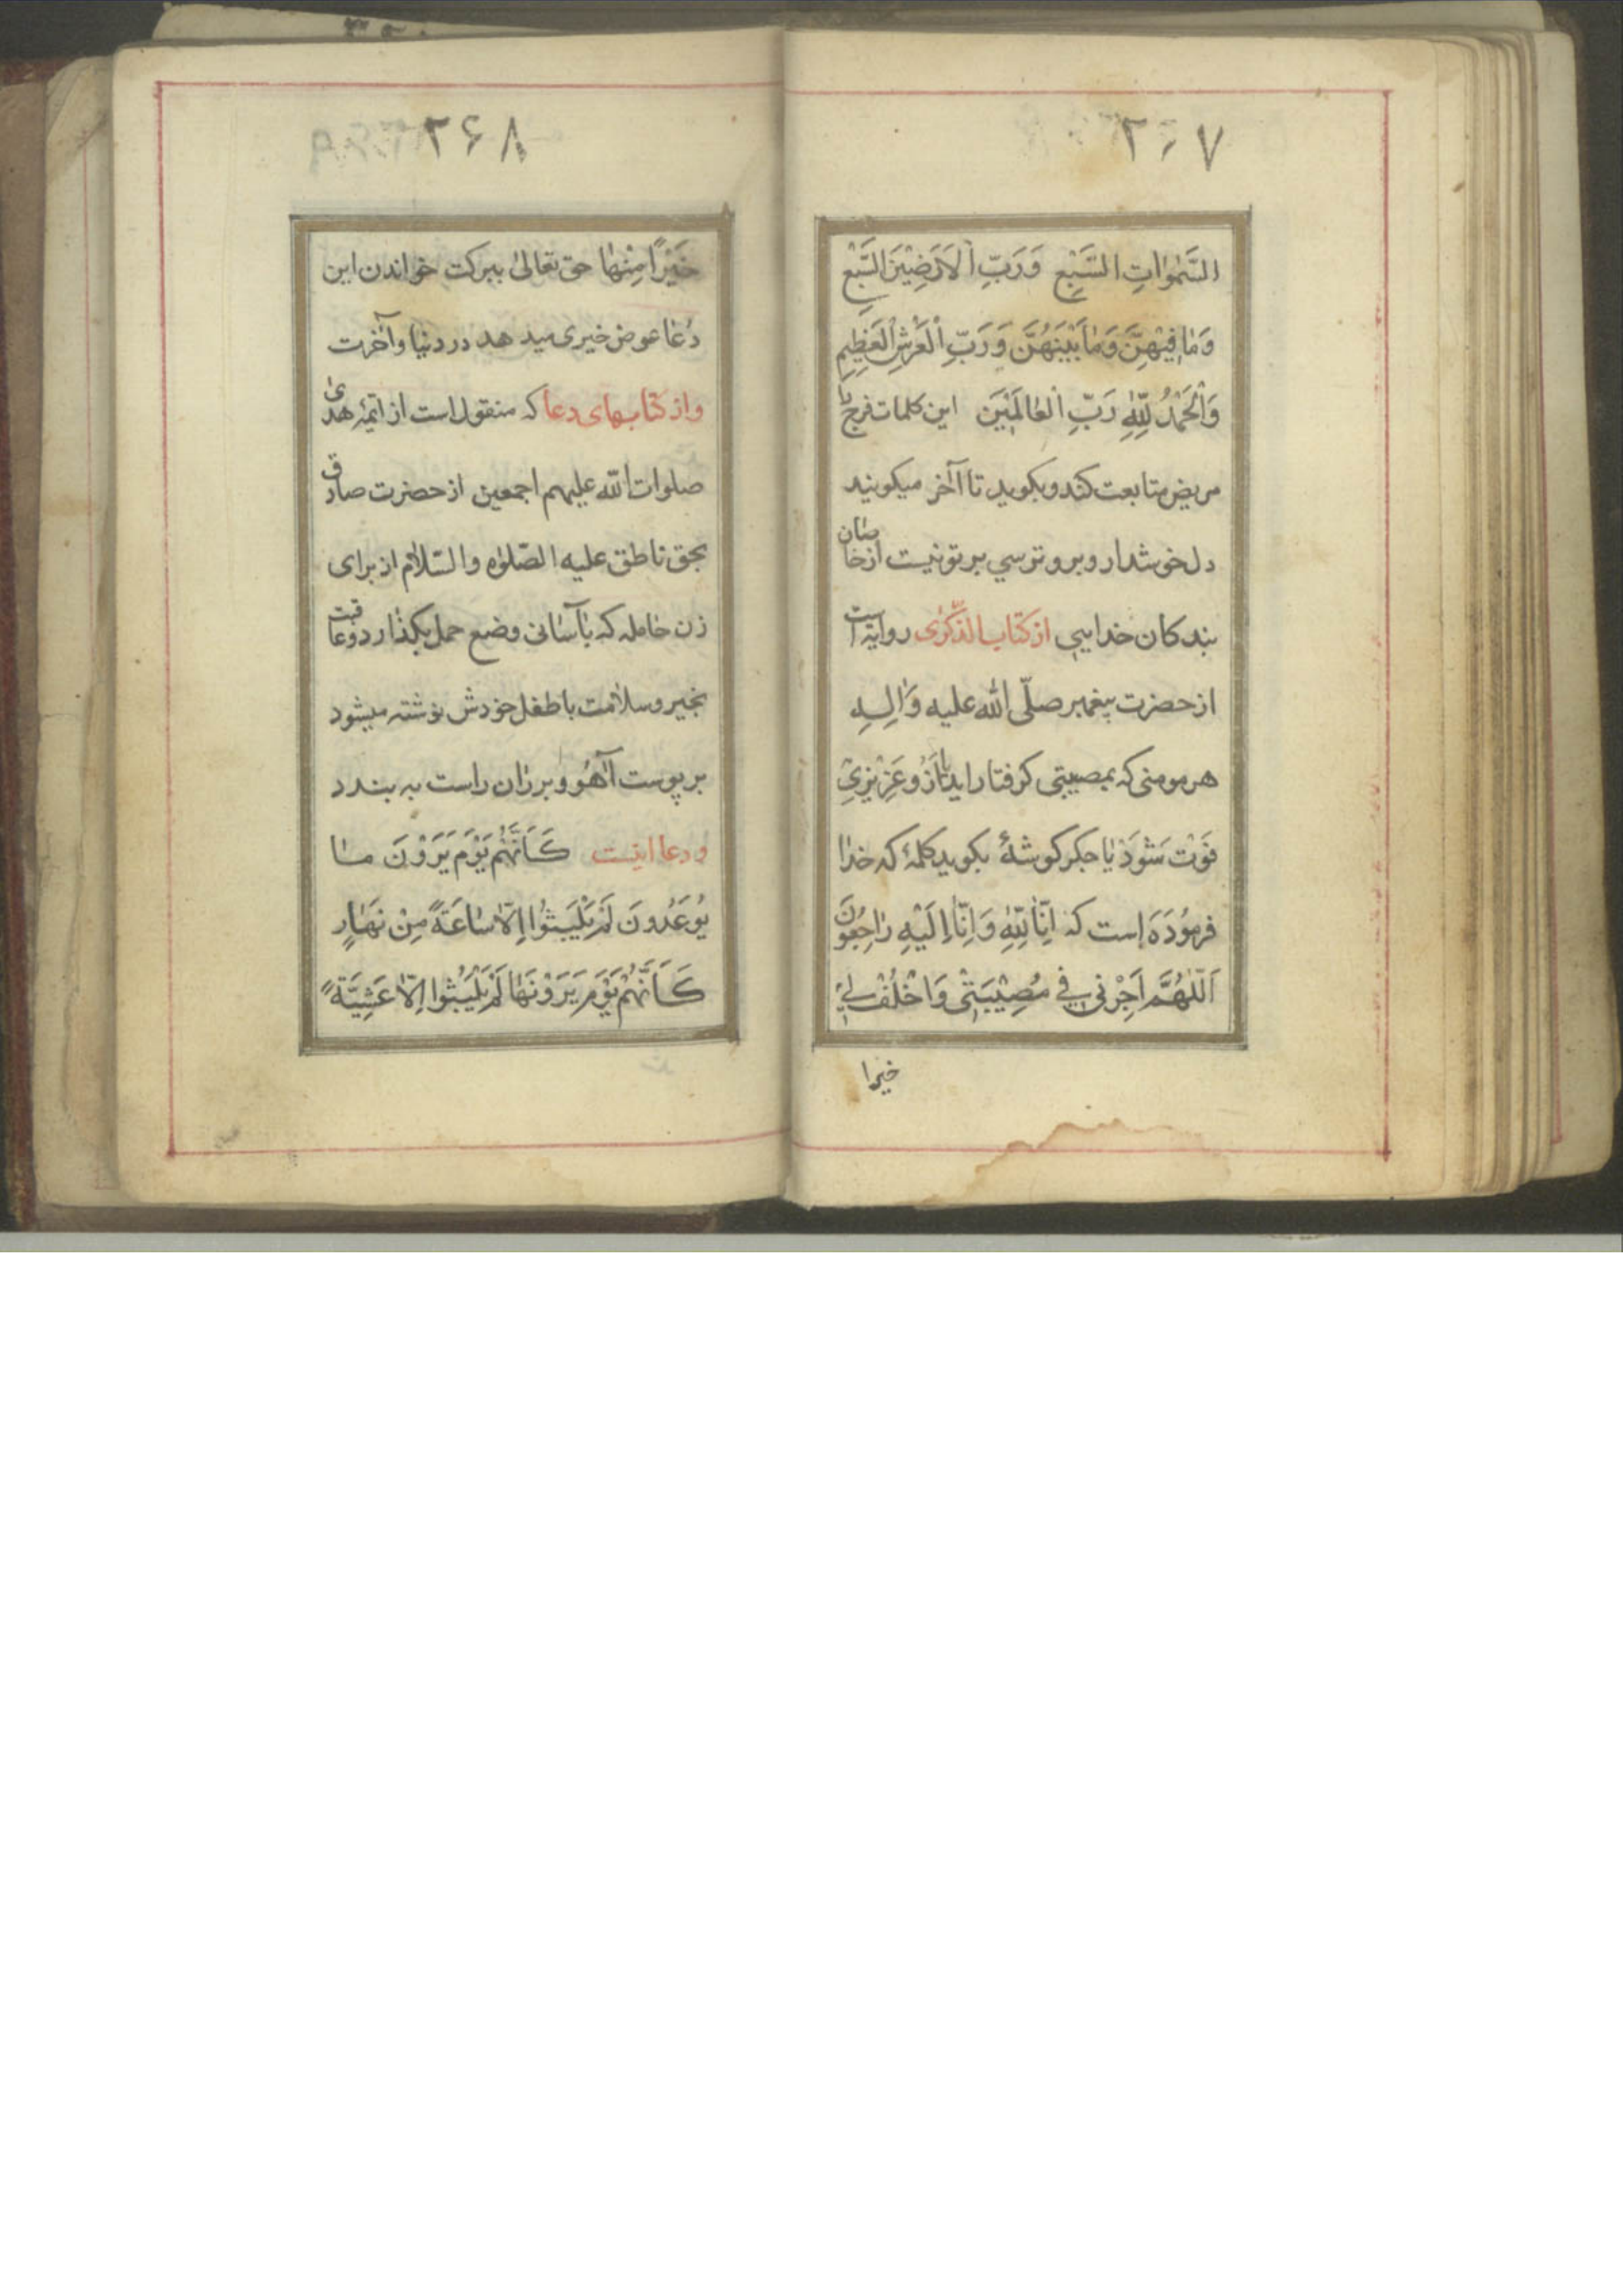 ۲۶۷
السَّمٰوٰاتِ السَّبْعِ وَرَبِّ الْاَرَضِيْنَ السَّبْعِ
وَمٰا فِيْهِنَّ وَمٰا بَيْنَهُنَّ وَرَبِّ الْعَرْشِ الْعَظِيْمِ
وَالْحَمْدُ لِلّٰهِ رَبِّ الْعٰالَمِيْنَ این کلمات فرج با
مریض متابعت کند و بکوید تا آخر میکویند
دل خوشدار و برو ترسی بر تو نیست از خاصان
بندکان خدایی از کتاب الذکری روایة است
از حضرت پیغمبر صلّی الله علیه وَاٰلِهِ
هر مومنی که بمصیبتی کرفتار اید یا اَزُو عَزِیْزِیْ
فَوْت شَوَدْ یا جکر کوشهٔ بکوید کلمهٔ که خدا
فرمُوْدَه است که اِنّٰا لِلّٰهِ وَاِنّٰا اِلَيْهِ رٰاجِعُوْنَ
اَللّٰهُمَّ اَجِرْنِي فِي مُصِيْبَتِيْ وَاخْلُفْ لِيْ
خیرا
۲۶۸
خَيْرًا مِنْهٰا حق تعالیٰ ببرکت خواندن این
دُعٰا عوض خیری میدهد در دنیا و آخرت
و از کتابهای دعا که منقول است از ائمهٔ هدیٰ
صلوات الله علیهم اجمعین از حضرت صادق
بحق ناطق علیه الصّلوٰه والسّلام از برای
زن حامله که باسانی وضع حمل بکذارد و عاقبت
بخیر و سلامت با طفل خودش نوشته میشود
بر پوست آهُو و بر ران راست به بندد
و دعا اینست كَاَنَّهُمْ يَوْمَ يَرَوْنَ مٰا
يُوعَدُونَ لَمْ يَلْبَثُوا اِلّٰا سٰاعَةً مِنْ نَهٰارٍ
كَاَنَّهُمْ يَوْمَ يَرَوْنَهٰا لَمْ يَلْبَثُوا اِلّٰا عَشِيَّةً